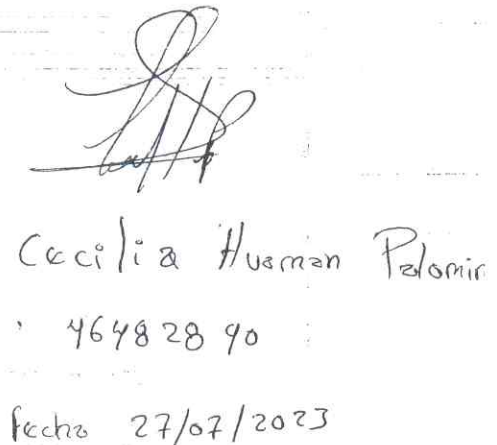 Cecilia Huaman Palomin
46482890
fecha 27/07/2023